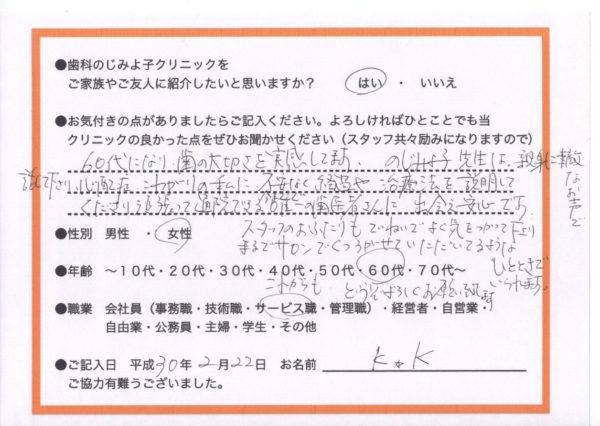 ●歯科のじみよ子クリニックを
ご家族やご友人に紹介したいと思いますか？ はい ・ いいえ
●お気付きの点がありましたらご記入ください。よろしければひとことでも当
クリニックの良かった点をぜひお聞かせください（スタッフ共々励みになりますので）
60代になり、歯の大切さを実感してます。 のじみよ子先生は、親身に
な お声で
心配症、こわがりの私に 不安なく 治療法を説明して
くださり 通院できる 歯医者さんに 出会え安心です
●性別 男性 ・ 女性
スタッフのおふたりも ていねいで よく気をつかって下さり
まるでサロンでくつろがせていただいてるような
ひとときで
いられます。
●年齢 〜10代・20代・30代・40代・50代・60代・70代〜
これからも どうぞよろしくお願い致します
●職業 会社員（事務職・技術職・サービス職・管理職）・経営者・自営業・
自由業・公務員・主婦・学生・その他
●ご記入日 平成30年2月22日 お名前 K☆K
ご協力有難うございました。